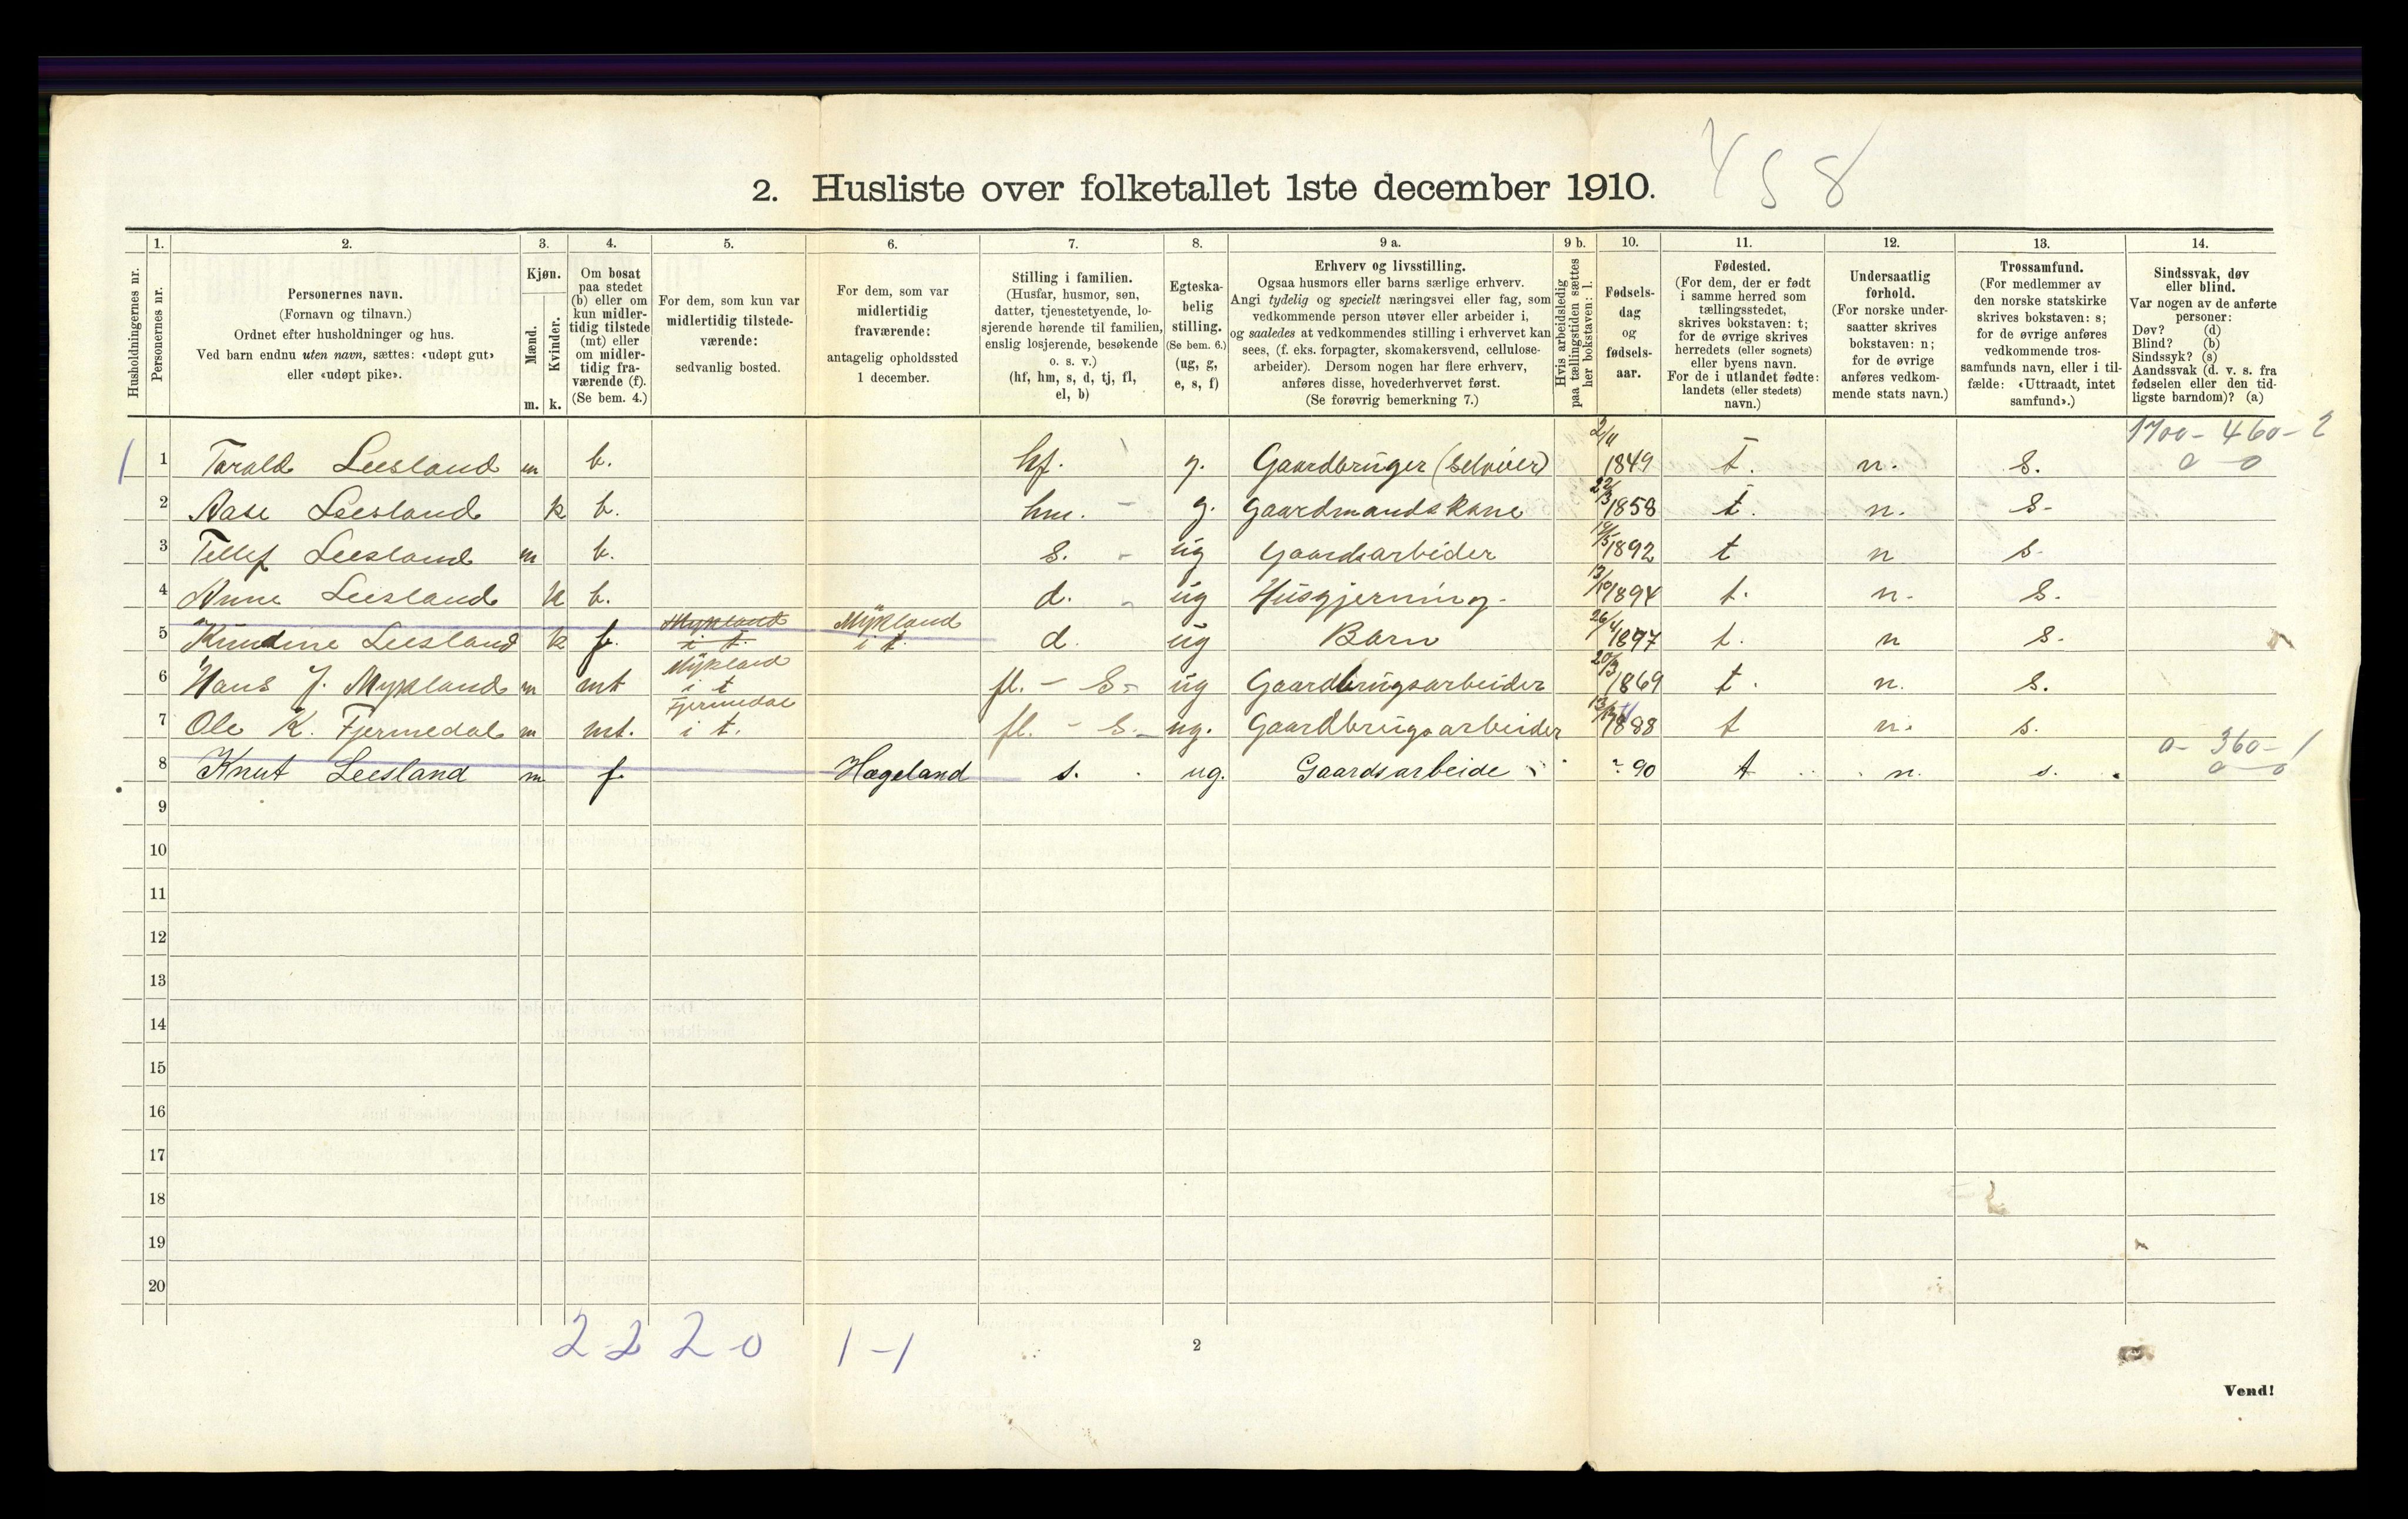 458
2. Husliste over folketallet 1ste december 1910.
Husholdningernes nr.
1.
Personernes nr.
2.
Personernes navn.
(Fornavn og tilnavn.)
Ordnet efter husholdninger og hus.
Ved barn endnu uten navn, sættes: «udøpt gut»
eller «udøpt pike».
3.
Kjøn.
Mænd.
Kvinder.
m. k.
4.
Om bosat
paa stedet
(b) eller om
kun midler-
tidig tilstede
(mt) eller
om midler-
tidig fra-
værende (f).
(Se bem. 4.)
5.
For dem, som kun var
midlertidig tilstede-
værende:
sedvanlig bosted.
6.
For dem, som var
midlertidig
fraværende:
antagelig opholdssted
1 december.
7.
Stilling i familien.
(Husfar, husmor, søn,
datter, tjenestetyende, lo-
sjerende hørende til familien,
enslig losjerende, besøkende
o. s. v.)
(hf, hm, s, d, tj, fl,
el, b)
8.
Egteska-
belig
stilling.
(Se bem. 6.)
(ug, g,
e, s, f)
9 a.
Erhverv og livsstilling.
Ogsaa husmors eller barns særlige erhverv.
Angi tydelig og specielt næringsvei eller fag, som
vedkommende person utøver eller arbeider i,
og saaledes at vedkommendes stilling i erhvervet kan
sees, (f. eks. forpagter, skomakersvend, cellulose-
arbeider). Dersom nogen har flere erhverv,
anføres disse, hovederhvervet først.
(Se forøvrig bemerkning 7.)
9 b.
Hvis arbeidsledig
paa tællingstiden sættes
her bokstaven: l.
10.
Fødsels-
dag
og
fødsels-
aar.
11.
Fødested.
(For dem, der er født
i samme herred som
tællingsstedet,
skrives bokstaven: t;
for de øvrige skrives
herredets (eller sognets)
eller byens navn.
For de i utlandet fødte:
landets (eller stedets)
navn.)
12.
Undersaatlig
forhold.
(For norske under-
saatter skrives
bokstaven: n;
for de øvrige
anføres vedkom-
mende stats navn.)
13.
Trossamfund.
(For medlemmer av
den norske statskirke
skrives bokstaven: s;
for de øvrige anføres
vedkommende tros-
samfunds navn, eller i til-
fælde: «Uttraadt, intet
samfund».)
14.
Sindssvak, døv
eller blind.
Var nogen av de anførte
personer:
Døv? (d)
Blind? (b)
Sindssyk? (s)
Aandssvak (d. v. s. fra
fødselen eller den tid-
ligste barndom)? (a)
1700 - 460 - 2
0 - 0
1 1 Tarald Leesland m b. hf. g. Gaardbruger (selveier) 2/11 1849 t. n. s.
2 Aase Leesland k b. hm. - g. Gaardmandskone 22/3 1858 t. n. s-
3 Tellef Leesland m b. s. - ug Gaardsarbeider 14/5 1892 t n s-
4 Anne Leesland k b. d. - ug Husgjerning. 13/10 1894 t. n. s.
5 Kundine Leesland k f. Mykland i t. Mykland i t. d. ug Barn 26/4 1897 t. n s.
6 Hans J. Mykland m mt Mykland i t fl. - S- ug Gaardbrugsarbeider 20/3 1869 t. n. s.
7 Ole K. Fjermedal m mt. Fjermedal i t. fl. - S- ug. Gaardbrugsarbeider 1888 t n. s.
0 - 360 - 1
0 - 0
8 Knut Leesland m f Hægeland s. ug. Gaardsarbeide 90 t n. s.
9
10
11
12
13
14
15
16
17
18
19
20
2-2 2-0 1-1
2
Vend!